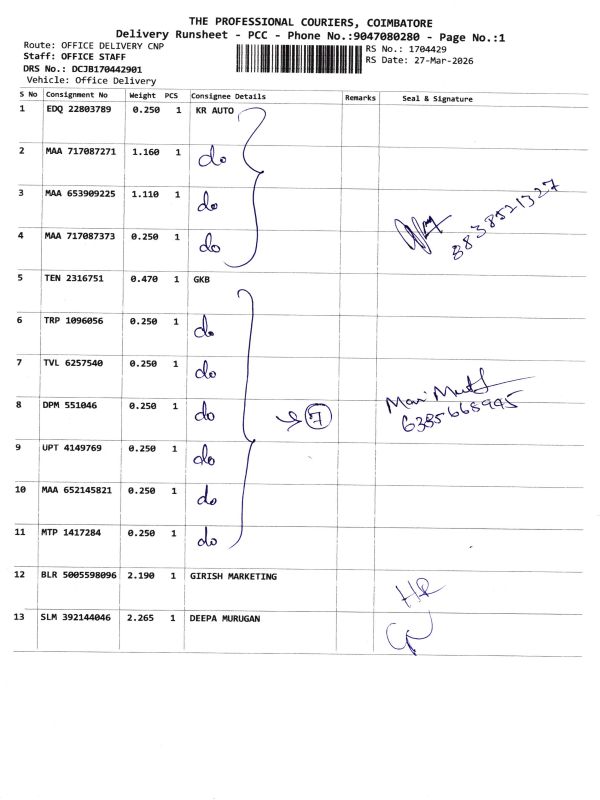 THE PROFESSIONAL COURIERS, COIMBATORE
Delivery Runsheet - PCC - Phone No.:9047080280 - Page No.:1
Route: OFFICE DELIVERY CNP
Staff: OFFICE STAFF
DRS No.: DCJB170442901
Vehicle: Office Delivery
RS No.: 1704429
RS Date: 27-Mar-2026
S No Consignment No Weight PCS Consignee Details Remarks Seal & Signature
1 EDQ 22803789 0.250 1 KR AUTO
2 MAA 717087271 1.160 1 do
3 MAA 653909225 1.110 1 do
4 MAA 717087373 0.250 1 do
8838521327
5 TEN 2316751 0.470 1 GKB
6 TRP 1096056 0.250 1 do
7 TVL 6257540 0.250 1 do
8 DPM 551046 0.250 1 do 7
Mari
6385668945
9 UPT 4149769 0.250 1 do
10 MAA 652145821 0.250 1 do
11 MTP 1417284 0.250 1 do
12 BLR 5005598096 2.190 1 GIRISH MARKETING
13 SLM 392144046 2.265 1 DEEPA MURUGAN